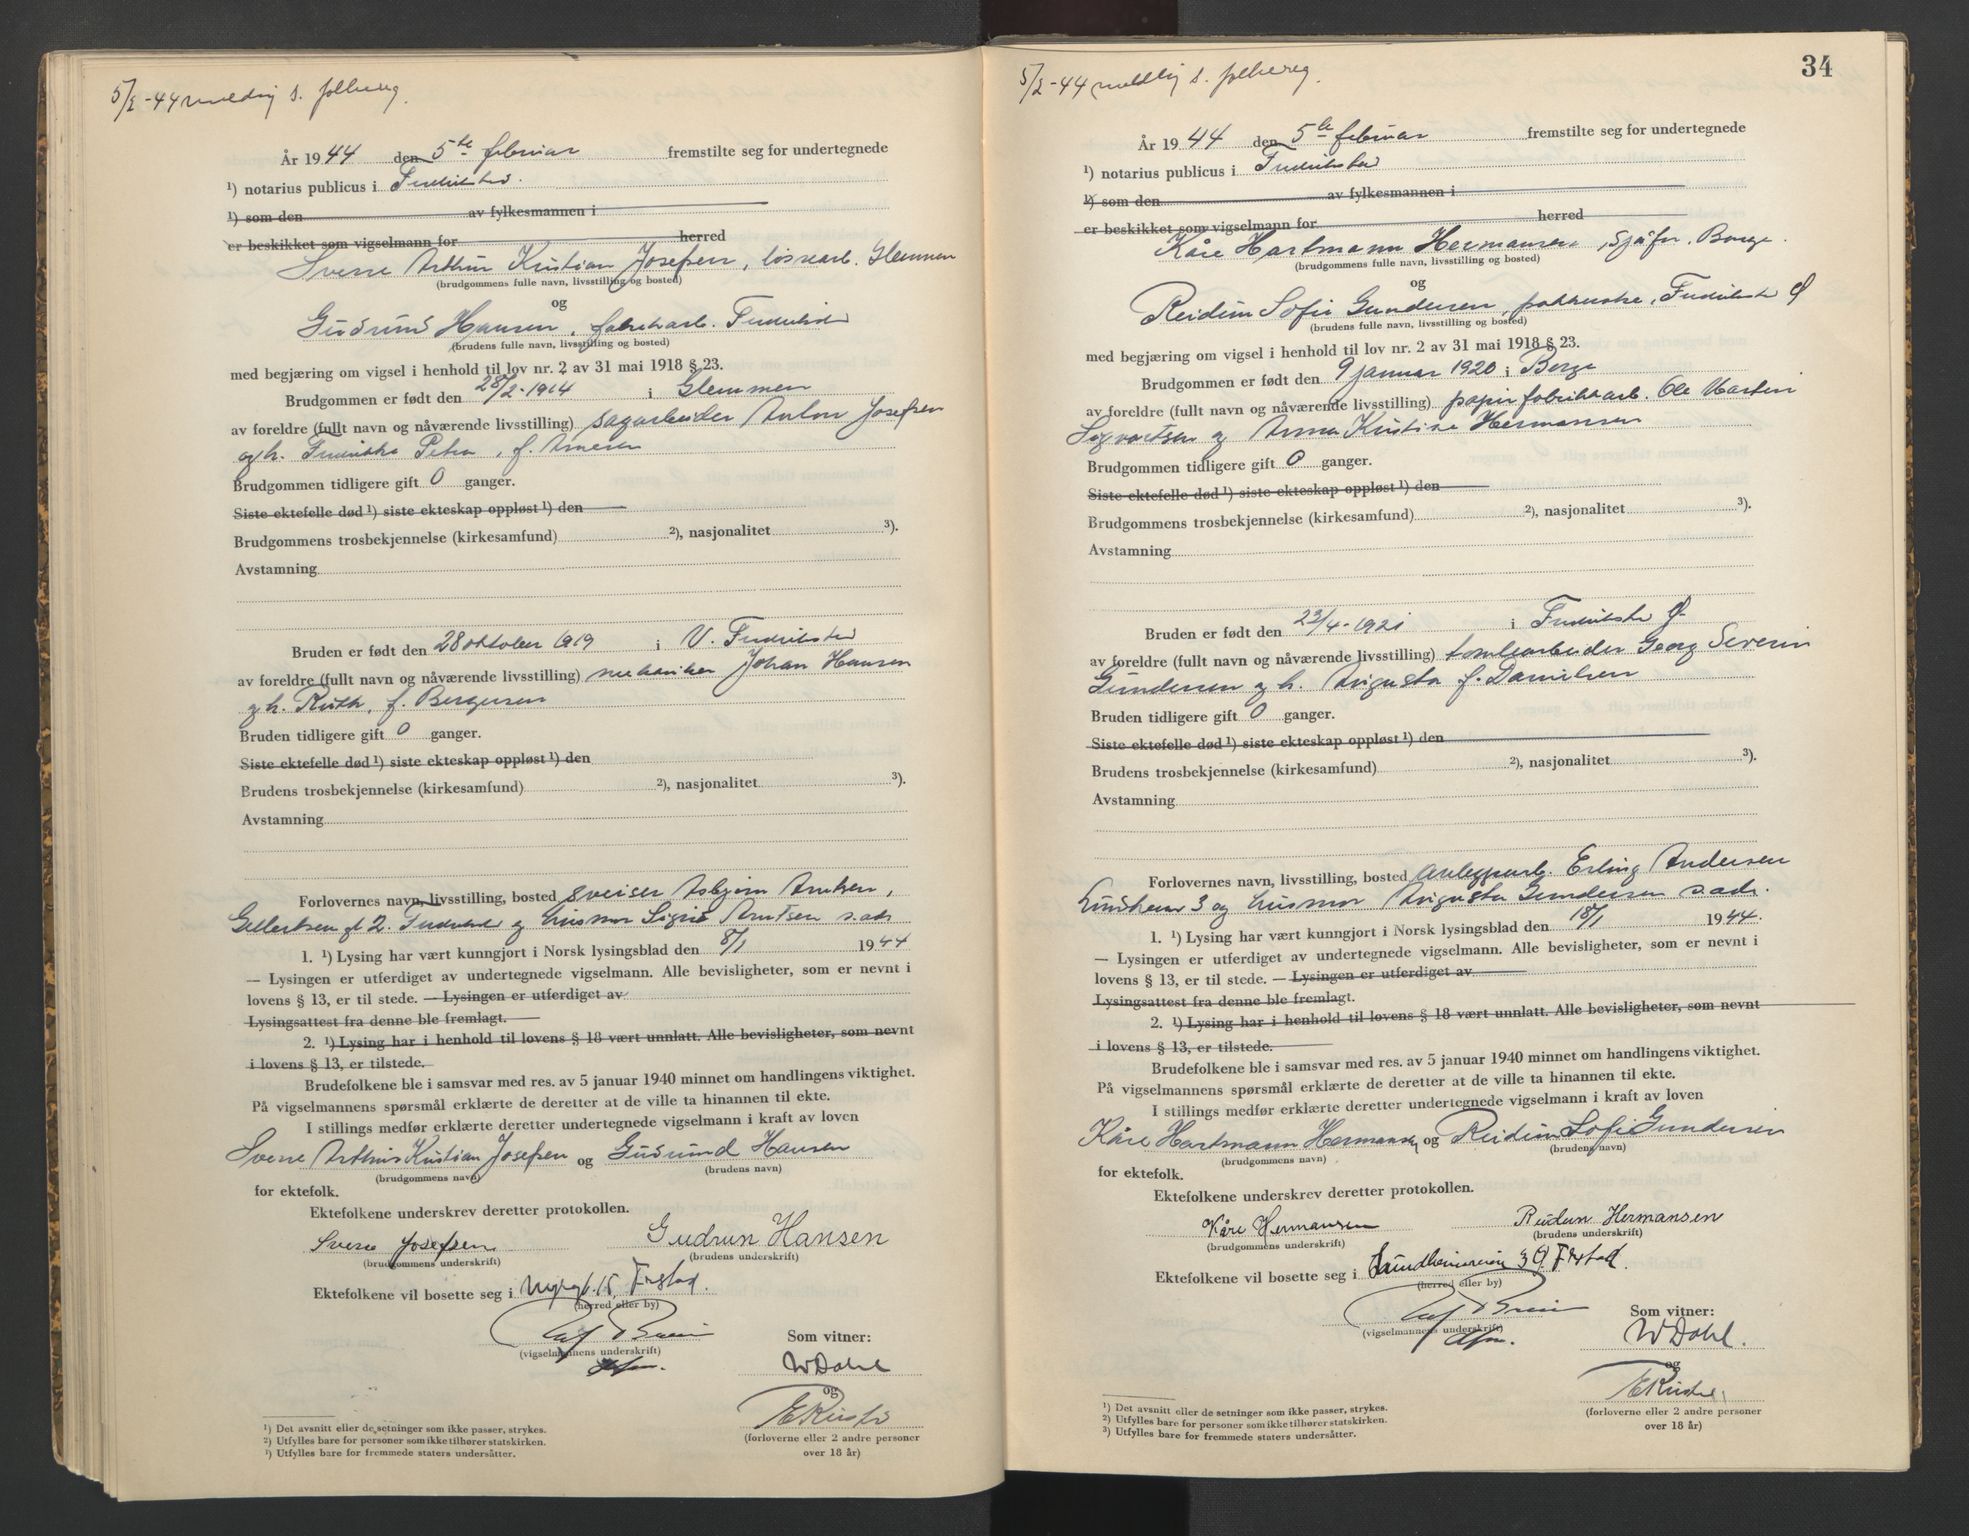 5/2-44 melding s. folkereg.
År 1944 den 5te februar fremstilte seg for undertegnede
¹) notarius publicus i Fredrikstad.
¹) som den av fylkesmannen i
er beskikket som vigselmann for herred
Sverre Arthur Kristian Josefsen, løsearb. Glemmen
(brudgommens fulle navn, livsstilling og bosted)
og
Gudrund Hansen, fabrikarb. Fredrikstad
(brudens fulle navn, livsstilling og bosted)
med begjæring om vigsel i henhold til lov nr. 2 av 31 mai 1918 § 23.
Brudgommen er født den 28/2-1914 i Glemmen
av foreldre (fullt navn og nåværende livsstilling) sagarbeider Anton Josefsen
og h. Fredrikke Petra, f. Arnesen
Brudgommen tidligere gift 0 ganger.
Siste ektefelle død ¹) siste ekteskap oppløst ¹) den
Brudgommens trosbekjennelse (kirkesamfund) ²), nasjonalitet ³).
Avstamning
Bruden er født den 28 oktober 1919 i V. Fredrikstad
av foreldre (fullt navn og nåværende livsstilling) mekaniker Johan Hansen
og h. Ruth, f. Bergersen
Bruden tidligere gift 0 ganger.
Siste ektefelle død ¹) siste ekteskap oppløst ¹) den
Brudens trosbekjennelse (kirkesamfund) ²), nasjonalitet ³).
Avstamning
Forlovernes navn, livsstilling, bosted sveiser Asbjørn Arntsen,
Gellertsens gt 2. Fredrikstad og husmor Sigrid Arntsen s.adr.
1. ¹) Lysing har vært kunngjort i Norsk lysingsblad den 8/1 1944
— Lysingen er utferdiget av undertegnede vigselmann. Alle bevisligheter, som er nevnt i
lovens § 13, er til stede. — Lysingen er utferdiget av
Lysingsattest fra denne ble fremlagt.
2. ¹) Lysing har i henhold til lovens § 18 vært unnlatt. Alle bevisligheter, som nevnt
i lovens § 13, er tilstede.
Brudefolkene ble i samsvar med res. av 5 januar 1940 minnet om handlingens viktighet.
På vigselmannens spørsmål erklærte de deretter at de ville ta hinannen til ekte.
I stillings medfør erklærte deretter undertegnede vigselmann i kraft av loven
Sverre Arthur Kristian Josefsen og Gudrund Hansen
(brudgommens navn) (brudens navn)
for ektefolk.
Ektefolkene underskrev deretter protokollen.
Sverre Josefsen Gudrun Hansen
(brudgommens underskrift) (brudens underskrift)
Ektefolkene vil bosette seg i Nygt. 15, Fr.stad.
(herred eller by)
Som vitner:
(vigselmannens underskrift)
W Dahl
og
(forloverne eller 2 andre personer
over 18 år)
¹) Det avsnitt eller de setninger som ikke passer, strykes.
²) Utfylles bare for personer som ikke tilhører statskirken.
¹) Utfylles bare for fremmede staters undersåtter.
34
5/2-44 melding s. folkereg.
År 1944 den 5te februar fremstilte seg for undertegnede
¹) notarius publicus i Fredrikstad
¹) som den av fylkesmannen i
er beskikket som vigselmann for herred
Kåre Hartmann Hermansen, sjåfør, Borge.
(brudgommens fulle navn, livsstilling og bosted)
og
Reidun Sofie Gundersen, pakkerske, Fredrikstad Ø
(brudens fulle navn, livsstilling og bosted)
med begjæring om vigsel i henhold til lov nr. 2 av 31 mai 1918 § 23.
Brudgommen er født den 9 januar 1920 i Borge
av foreldre (fullt navn og nåværende livsstilling) papirfabrikkarb. Ole Martin
Sigvartsen og Anna Kristine Hermansen
Brudgommen tidligere gift 0 ganger.
Siste ektefelle død ¹) siste ekteskap oppløst ¹) den
Brudgommens trosbekjennelse (kirkesamfund) ²), nasjonalitet ³).
Avstamning
Bruden er født den 23/4-1921 i Fredrikstad Ø.
av foreldre (fullt navn og nåværende livsstilling) tomtearbeider Georg Severin
Gundersen og h. Augusta f. Danielsen
Bruden tidligere gift 0 ganger.
Siste ektefelle død ¹) siste ekteskap oppløst ¹) den
Brudens trosbekjennelse (kirkesamfund) ²), nasjonalitet ³).
Avstamning
Forlovernes navn, livsstilling, bosted anleggsarb. Erling Andersen
3 og husmor Augusta Gundersen s.adr.
1. ¹) Lysing har vært kunngjort i Norsk lysingsblad den 18/1 1944.
— Lysingen er utferdiget av undertegnede vigselmann. Alle bevisligheter, som er nevnt i
lovens § 13, er til stede. — Lysingen er utferdiget av
Lysingsattest fra denne ble fremlagt.
2. ¹) Lysing har i henhold til lovens § 18 vært unnlatt. Alle bevisligheter, som nevnt
i lovens § 13, er tilstede.
Brudefolkene ble i samsvar med res. av 5 januar 1940 minnet om handlingens viktighet.
På vigselmannens spørsmål erklærte de deretter at de ville ta hinannen til ekte.
I stillings medfør erklærte deretter undertegnede vigselmann i kraft av loven
Kåre Hartmann Hermansen og Reidun Sofie Gundersen
(brudgommens navn) (brudens navn)
for ektefolk.
Ektefolkene underskrev deretter protokollen.
Kåre Hermansen Reidun Hermansen
(brudgommens underskrift) (brudens underskrift)
Ektefolkene vil bosette seg i Lundheimveien 3 Ø Fr.stad.
(herred eller by)
Som vitner:
(vigselmannens underskrift)
W Dahl.
og
(forloverne eller 2 andre personer
over 18 år)
¹) Det avsnitt eller de setninger som ikke passer, strykes.
²) Utfylles bare for personer som ikke tilhører statskirken.
³) Utfylles bare for fremmede staters undersåtter.